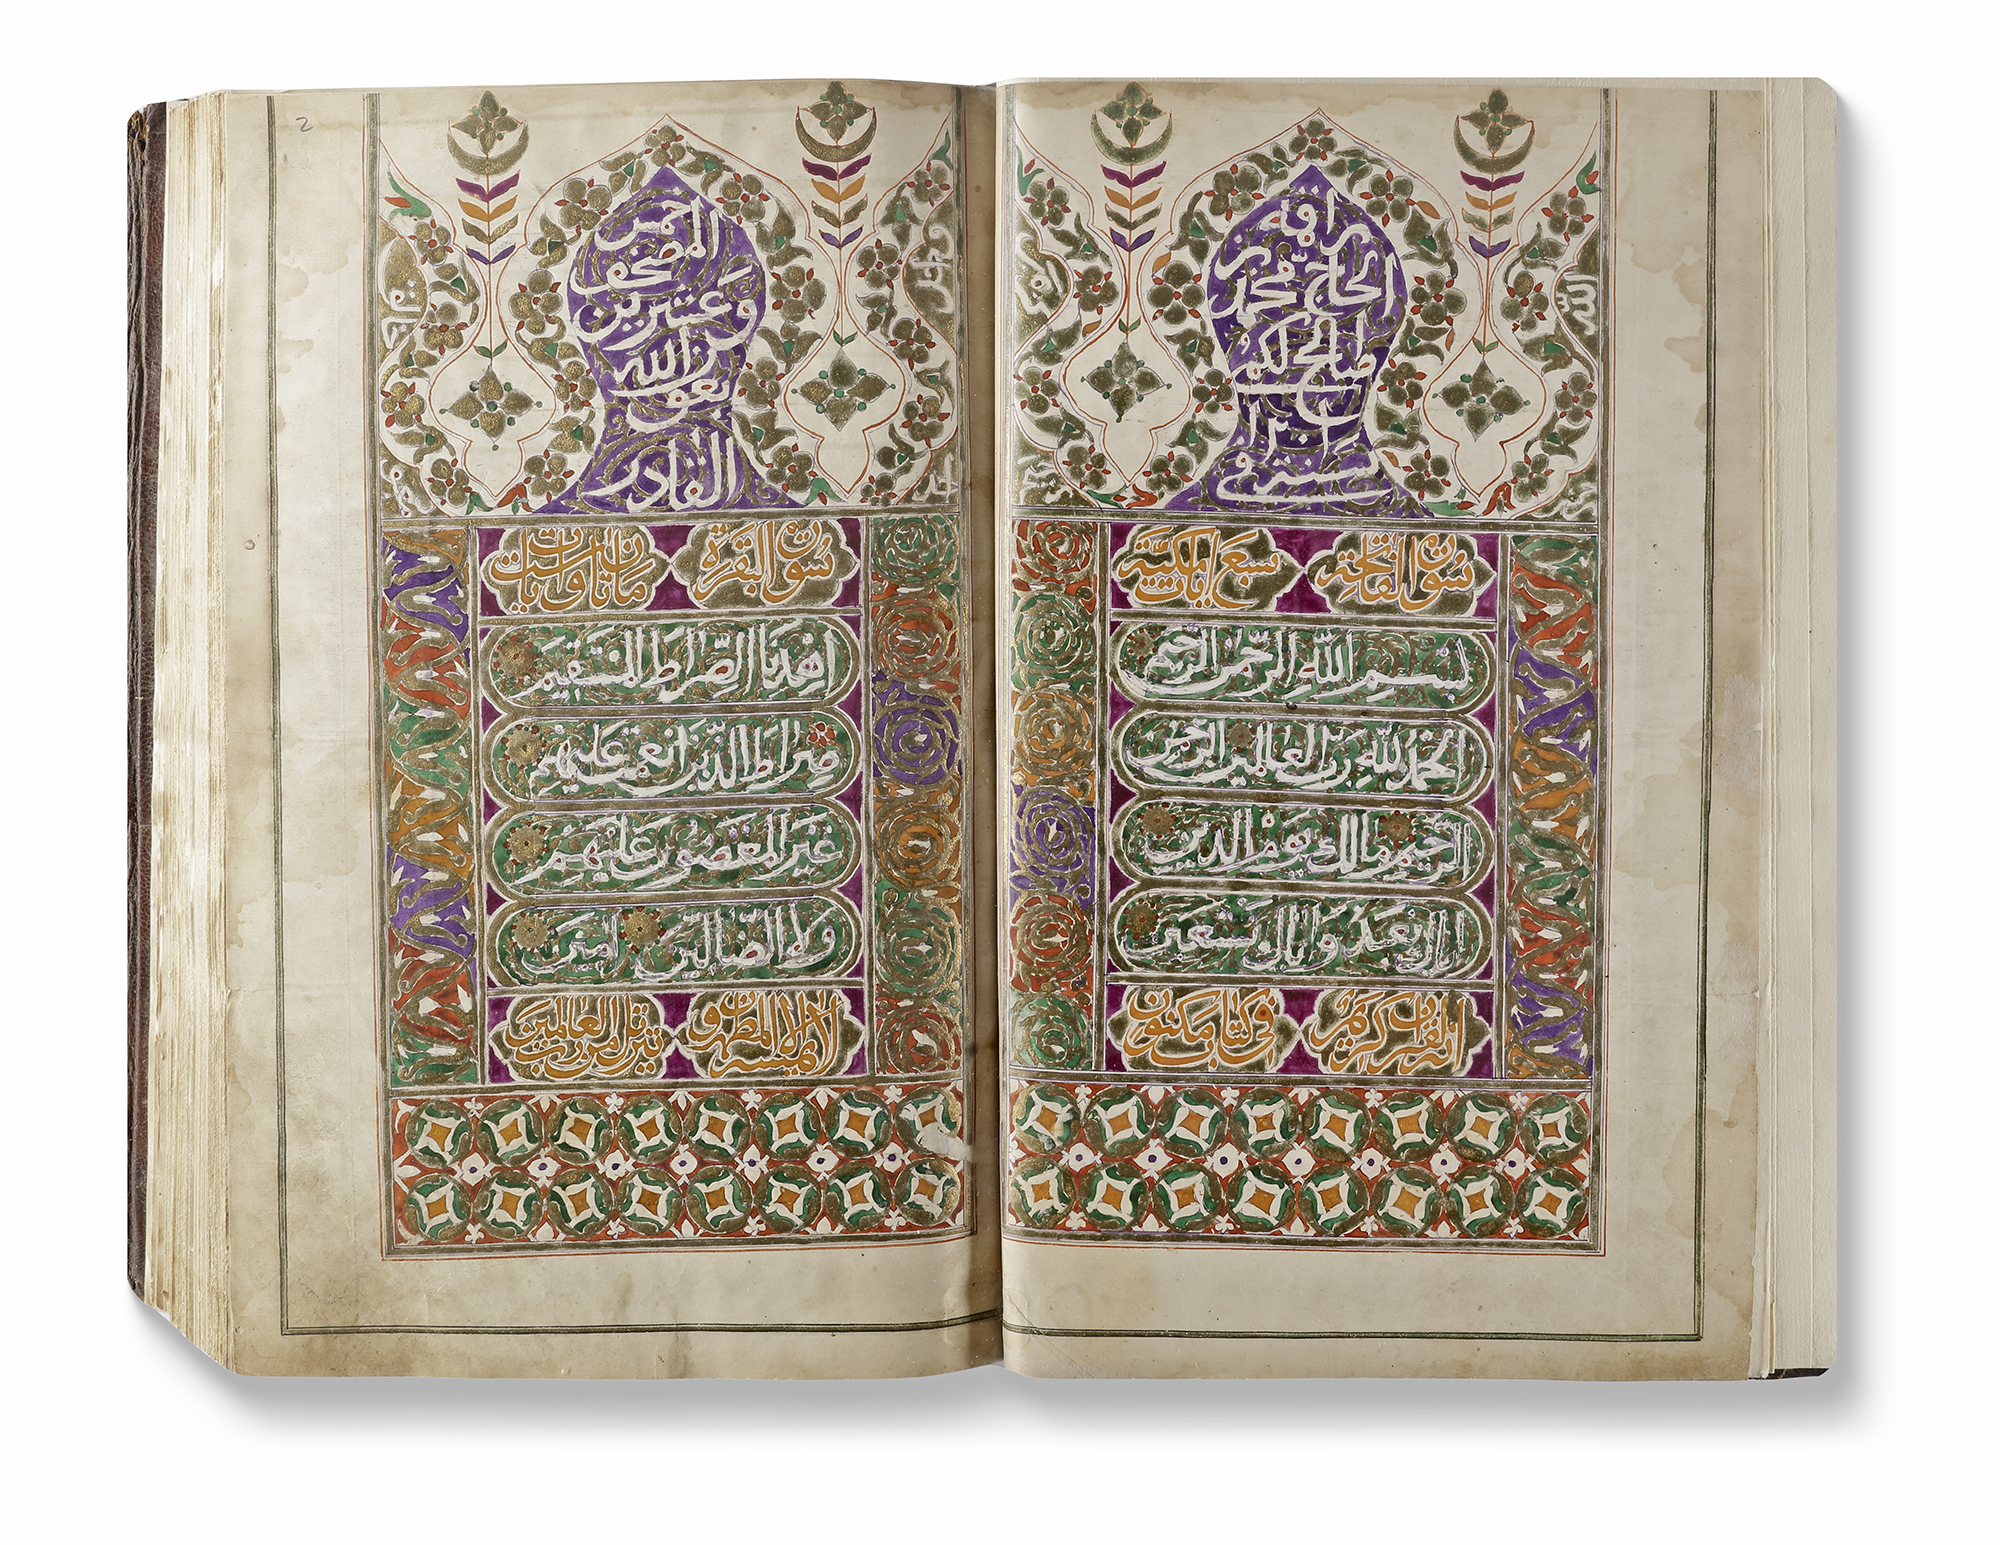 راقمه
الحاج محمد
صالح
سورة الفاتحة سبع آيات المكية
بسم الله الرحمن الرحيم
الحمد لله رب العالمين الرحمن
الرحيم مالك يوم الدين
اياك نعبد واياك نستعين
انه لقرآن كريم في كتاب مكنون
2
المصحف
وعشرين
بعون الله
القادر
سورة البقرة مائتان
اهدنا الصراط المستقيم
صراط الذين انعمت عليهم
غير المغضوب عليهم
ولا الضالين امين
لا يمسه الا المطهرون تنزيل من رب العالمين